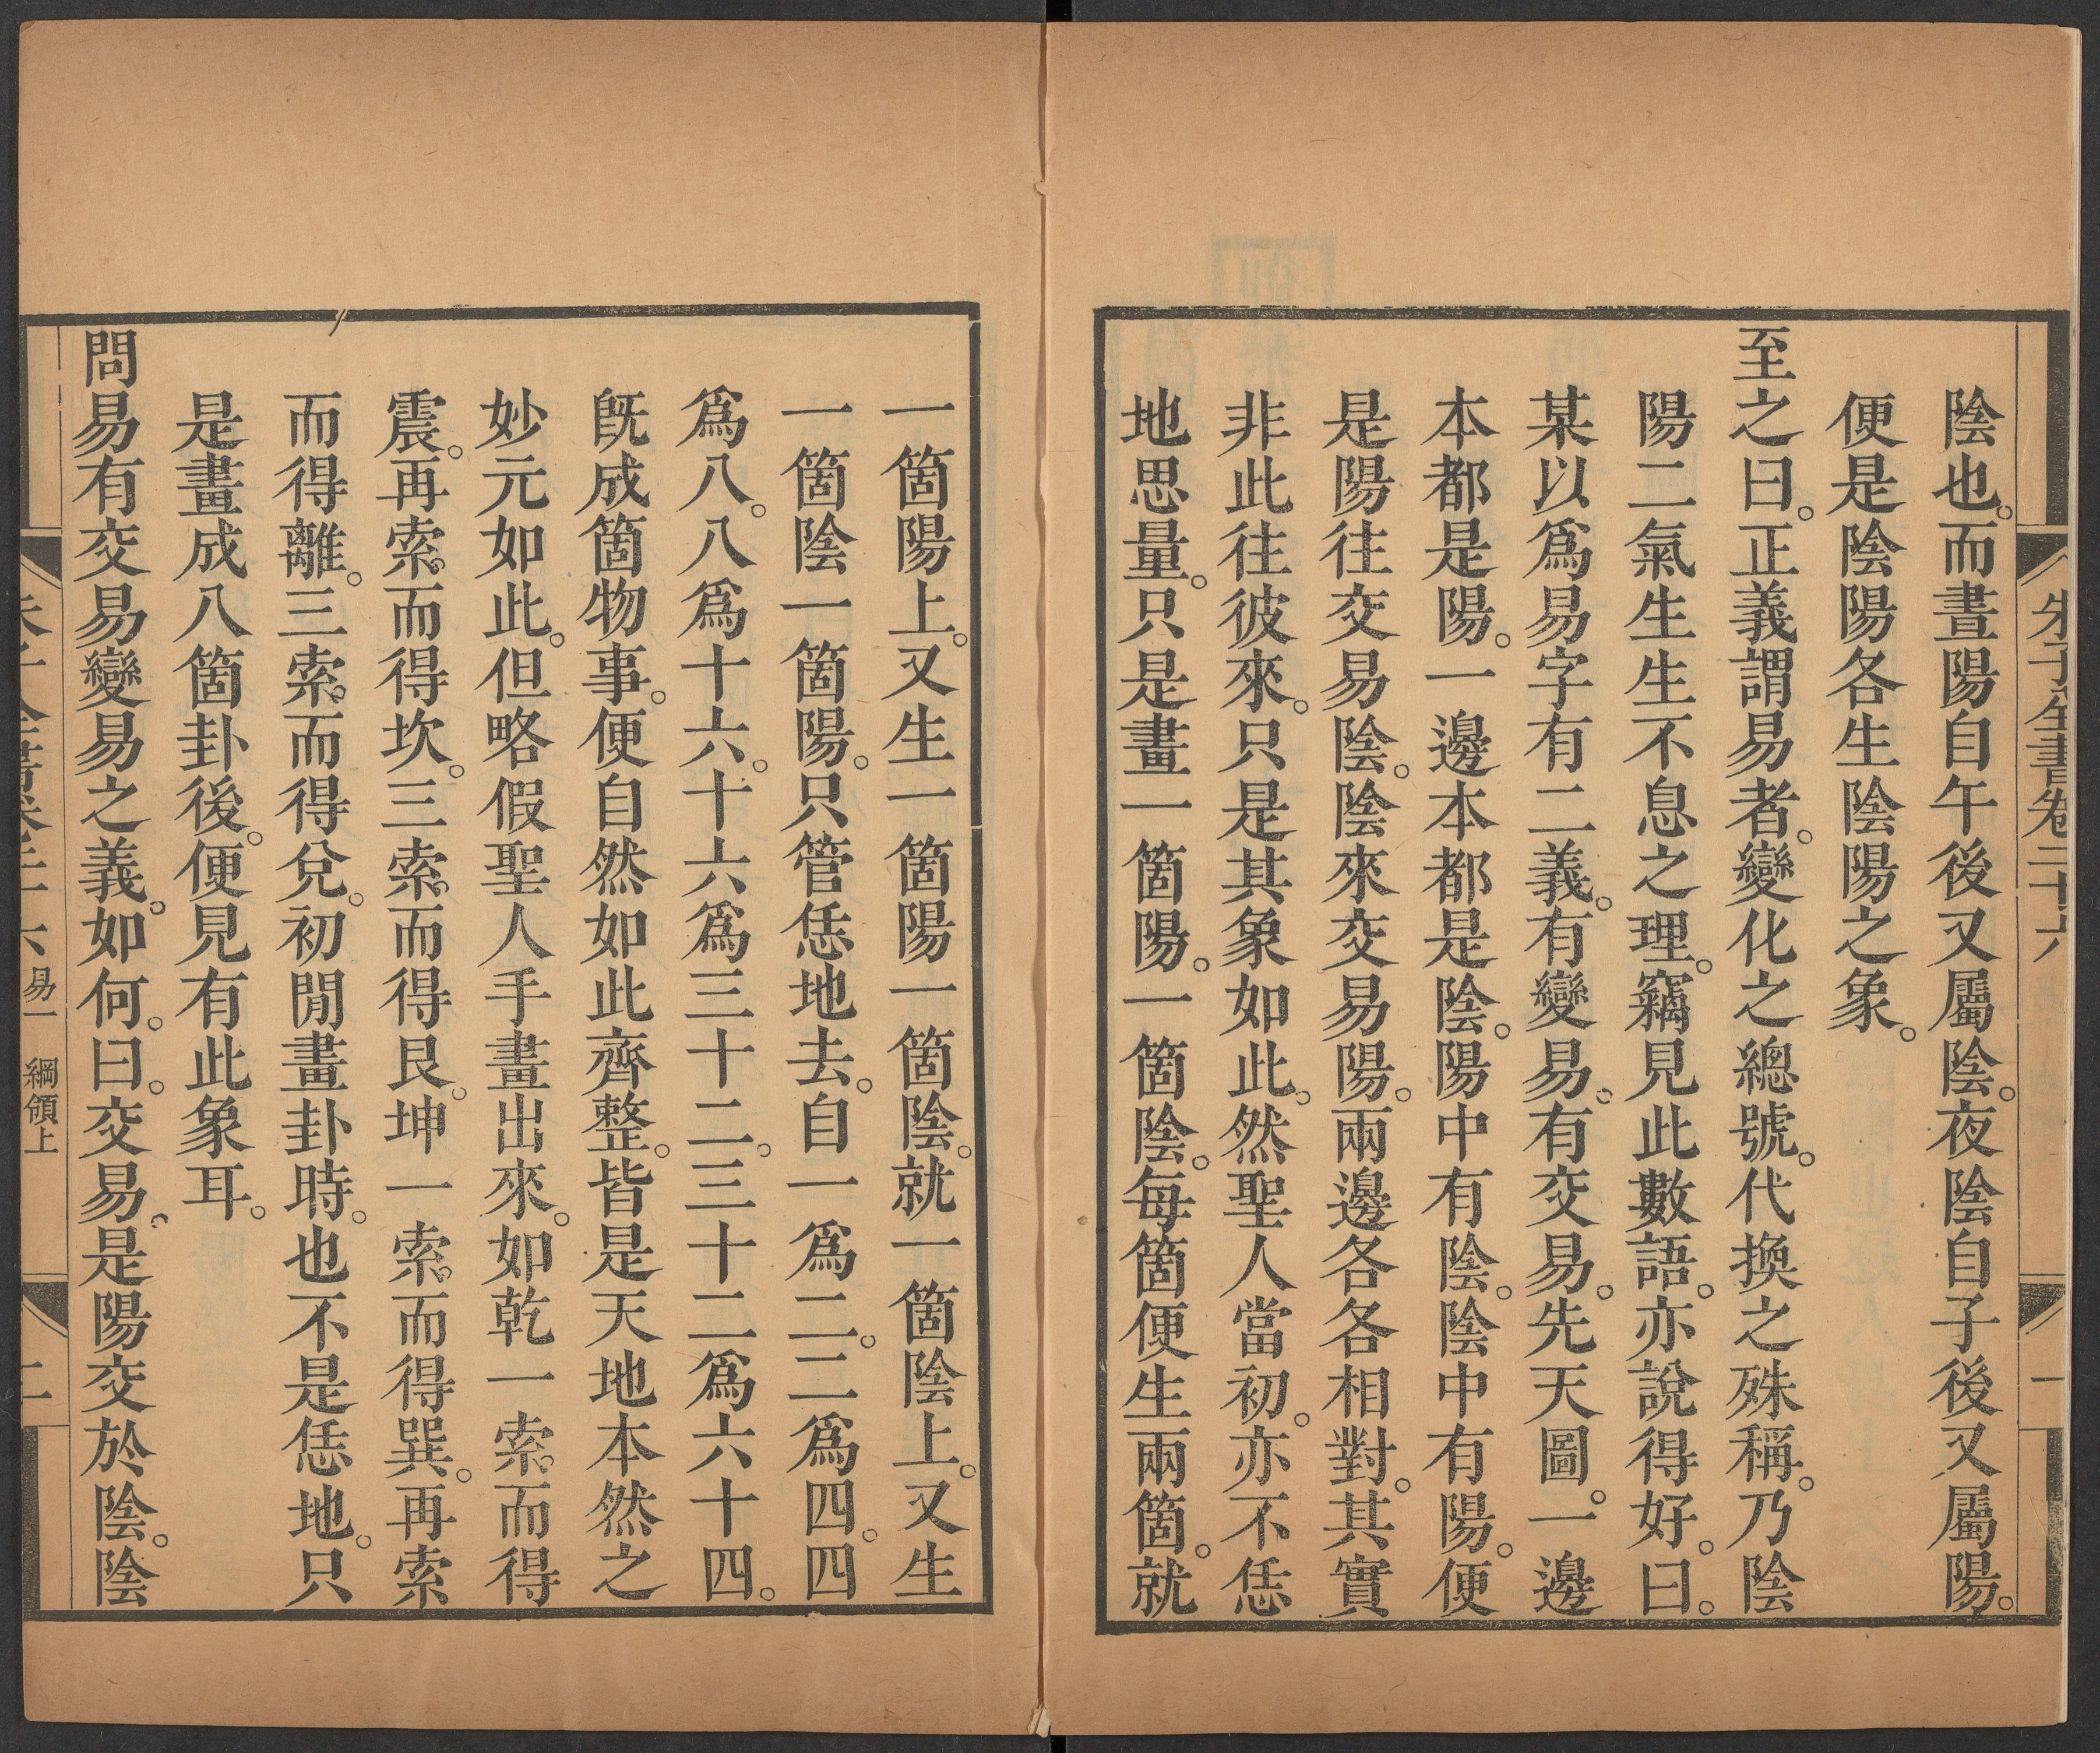 陰也。而晝陽自午後又屬陰。夜陰自子後又屬陽。
便是陰陽各生陰陽之象。
至之曰。正義謂易者。變化之總號。代換之殊稱。乃陰
陽二氣生生不息之理。竊見此數語。亦說得好。曰。
某以爲易字有二義。有變易。有交易。先天圖。一邊
本都是陽。一邊本都是陰。陽中有陰。陰中有陽。便
是陽往交易陰。陰來交易陽。兩邊各各相對。其實
非此往彼來。只是其象如此。然聖人當初。亦不恁
地思量。只是畫一箇陽。一箇陰。每箇便生兩箇。就
一箇陽上。又生一箇陽一箇陰。就一箇陰上。又生
一箇陰一箇陽。只管恁地去。自一爲二。二爲四。四
爲八。八爲十六。十六爲三十二。三十二爲六十四。
旣成箇物事。便自然如此齊整。皆是天地本然之
妙元如此。但略假聖人手畫出來。如乾一索。而得
震。再索。而得坎。三索。而得艮。坤一索。而得巽。再索
而得離。三索。而得兌。初閒畫卦時。也不是恁地。只
是畫成八箇卦後。便見有此象耳。
問易有交易變易之義。如何。曰。交易。是陽交於陰。陰
朱子全書卷二十六
一
易一 綱領上
二